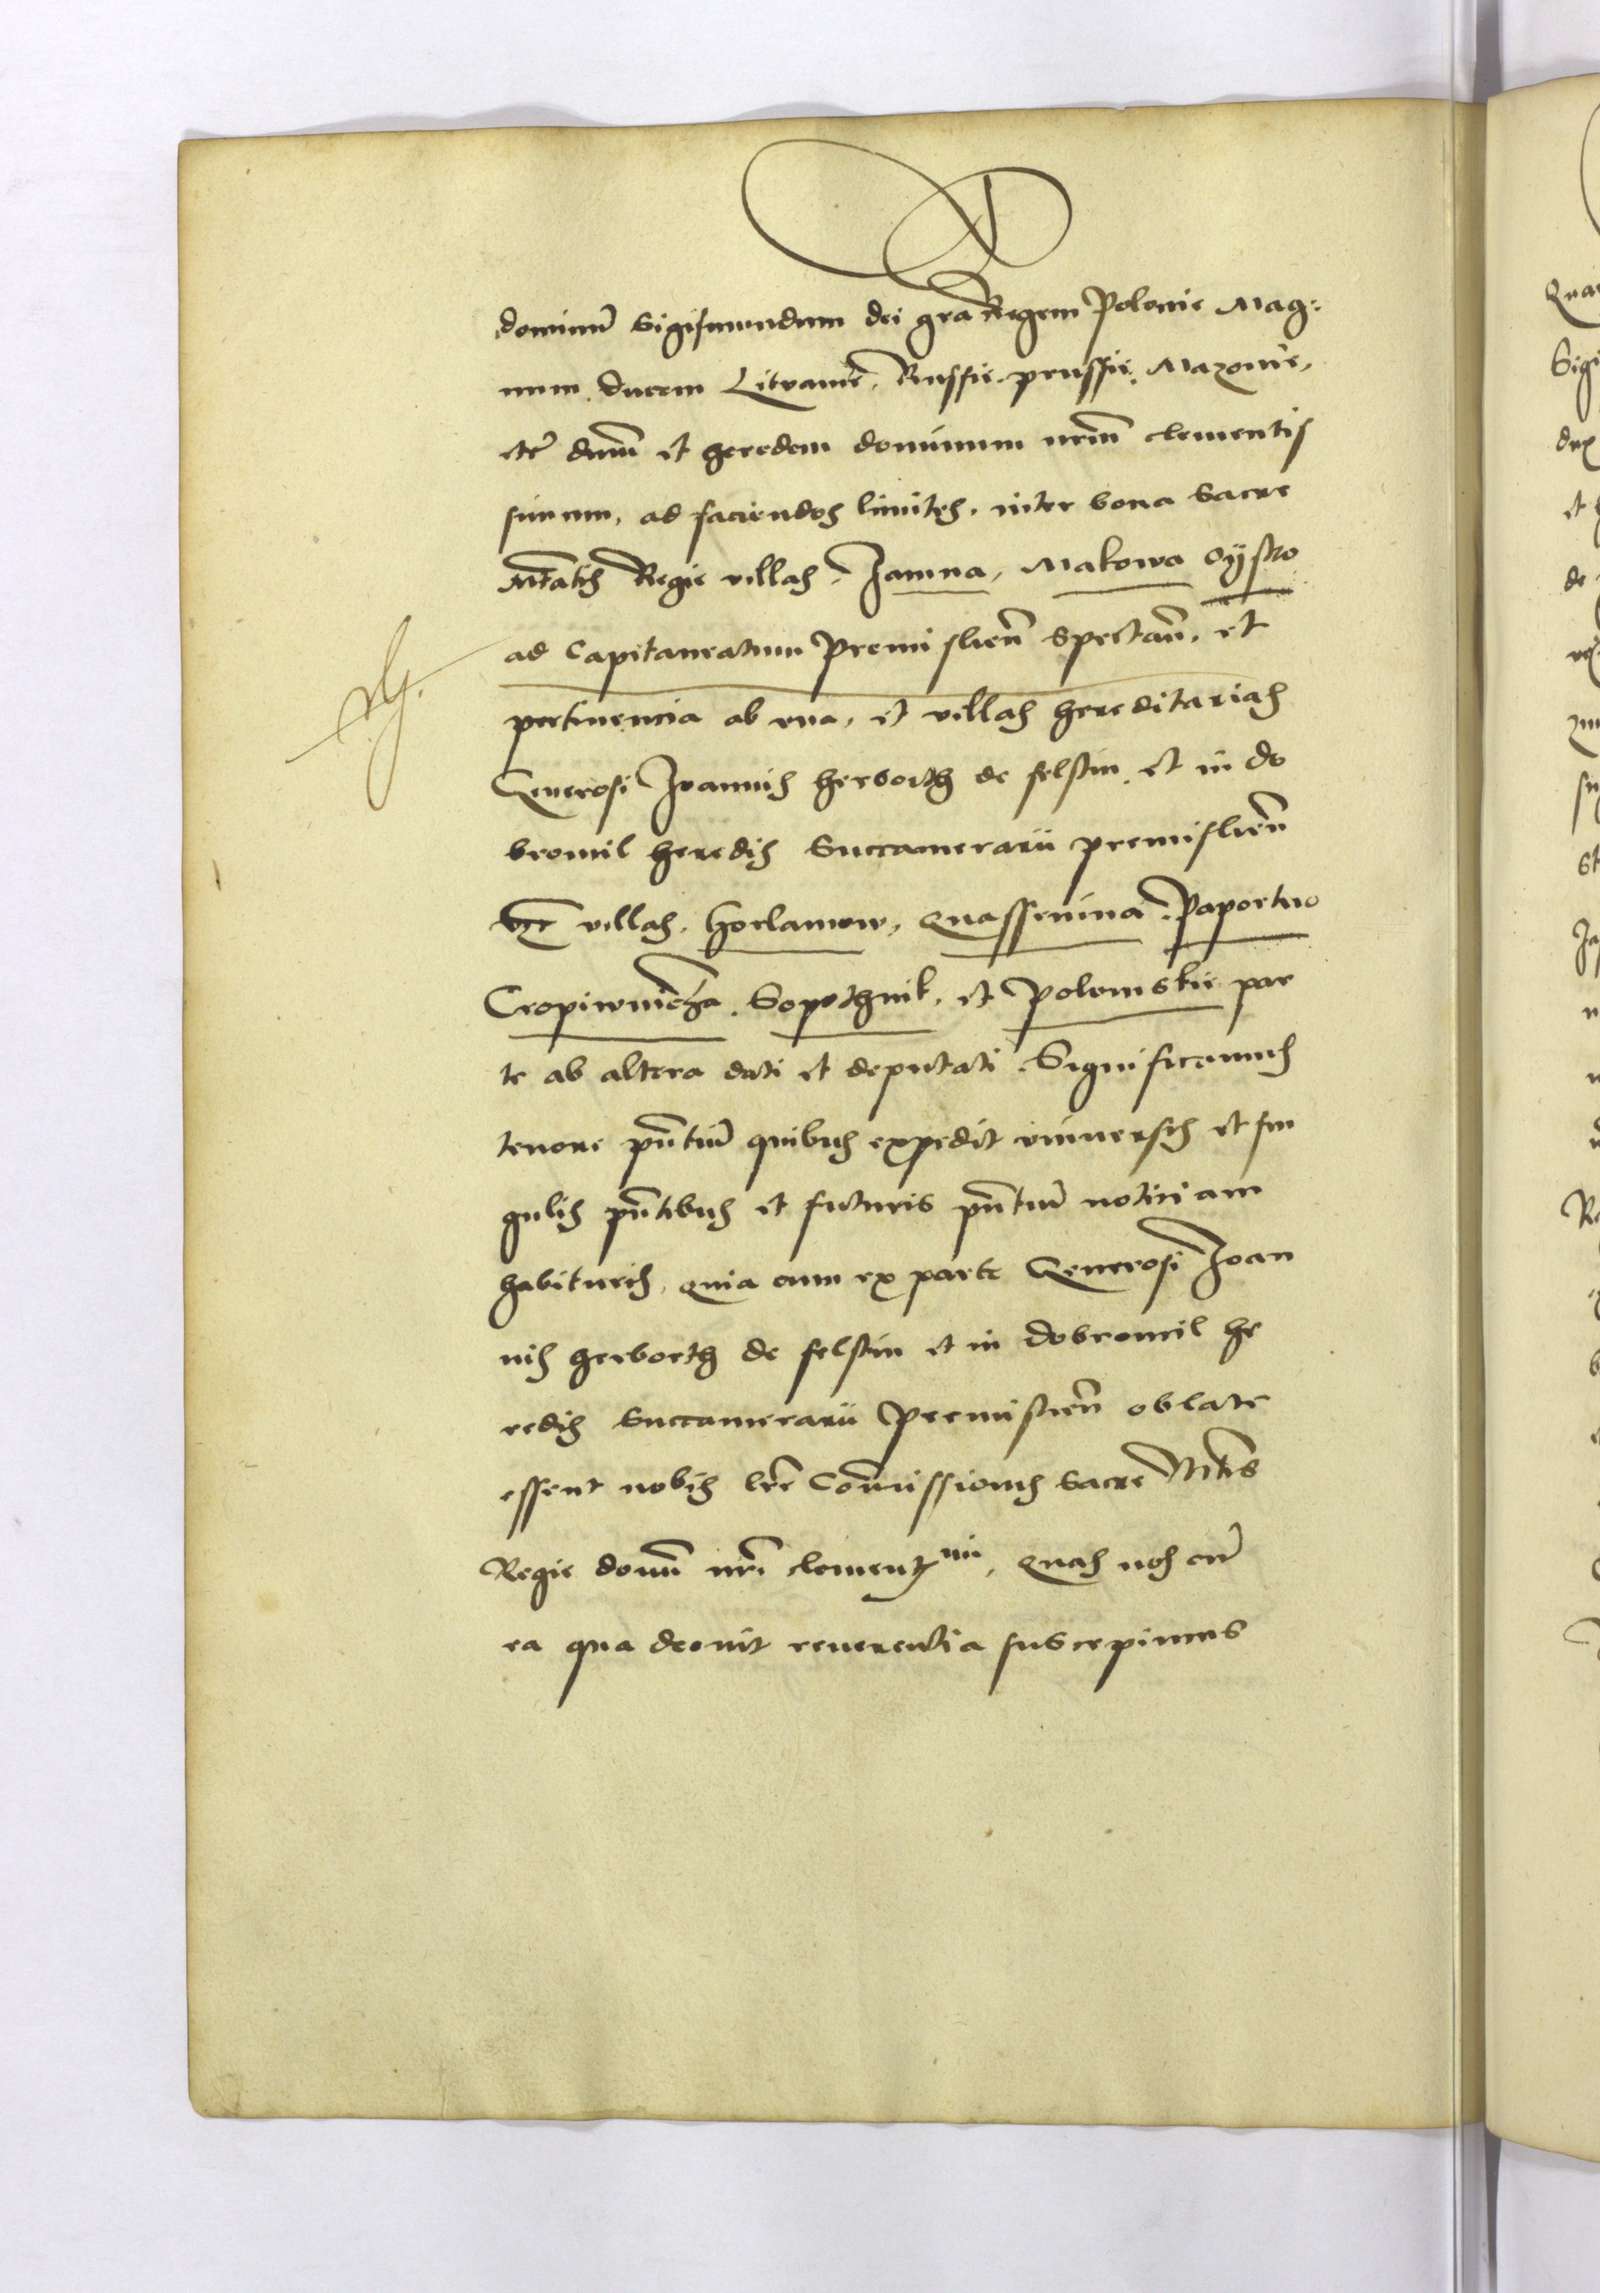 dominu͂ Sigismundum dei gra͂ Regem Polonie Mag:
num ducem Lituanie, Russie prussie, Mazouie,
ete͂ dnu͂m et heredem dominum nrm͂ clementis
simum, ad faciendos limites, inter bona Sacre
Mtatis͂ Regie villas, Jamna, Makowa Oystro
ad Capitaneatum Premislien͂ spectan͂, et
pertinencia ab vna, et villas hereditarias
Generosi Joannis herborth de felstin et in do
bromil heredis Succamerarii premislien͂
villas, Horlamow, Quassenina Paportno
Cropiwnicza Sopothnik, et Polomskie par
te ab altera dati et deputati Significamus
tenore pn͂tiu͂ quibus expedit vniuersis et sin
gulis pn͂tibus et futuris pn͂tiu͂ noticiam
habituris, quia cum ex parte Generosi Joan
nis herborth de felstin et in dobromil he
redis Succamerarii Premislien͂ oblate
essent nobis lr͂e Com͂issionis Sacre Mt͂is
Regie domi͂ nr͂i clementmi, quas nos cu͂
ea qua decuit reuerentia suscepimus